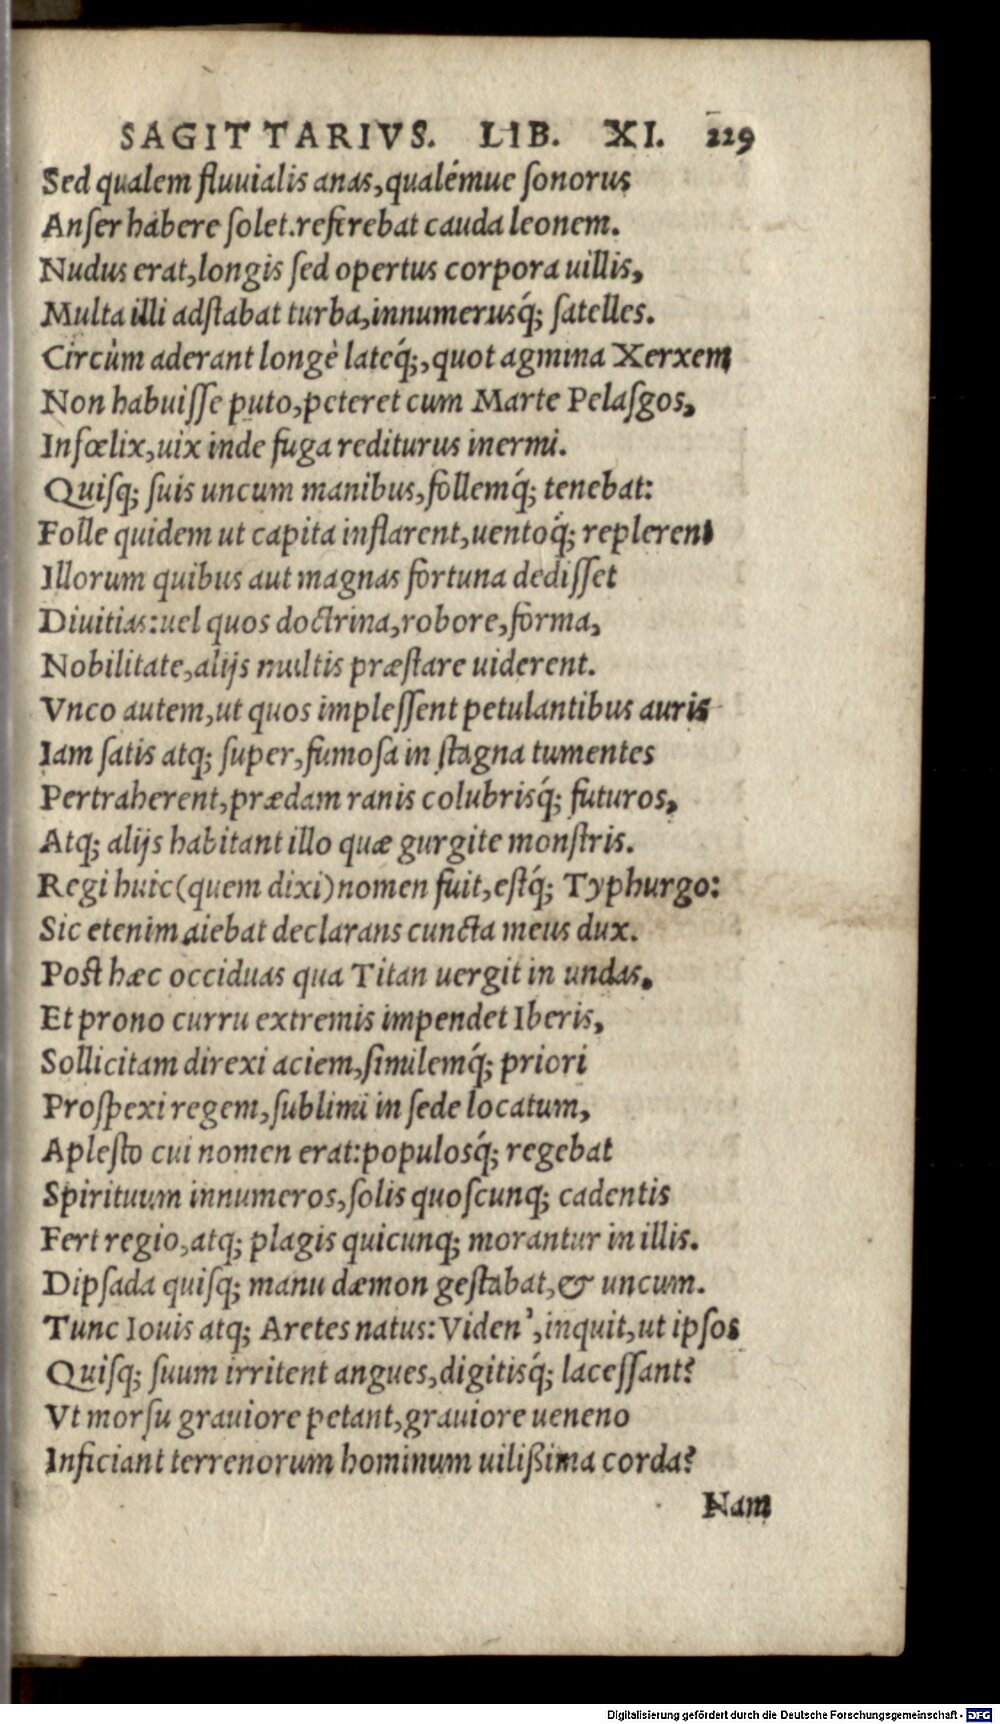 SAGITTARIVS. LIB. XI. 229
Sed qualem fluuialis anas, qualémue ſonorus
Anſer habere ſolet. referebat cauda leonem.
Nudus erat, longis ſed opertus corpora uillis,
Multa illi adſtabat turba, innumerusq́; ſatelles.
Circùm aderant longè lateq́;, quot agmina Xerxem
Non habuiſſe puto, peteret cum Marte Pelaſgos,
Infœlix, uix inde fuga rediturus inermi.
Quiſq; ſuis uncum manibus, follemq́; tenebat:
Folle quidem ut capita inflarent, uentoq́; replerent
Illorum quibus aut magnas fortuna dediſſet
Diuitias: uel quos doctrina, robore, forma,
Nobilitate, alijs multis præſtare uiderent.
Vnco autem, ut quos impleſſent petulantibus auris
Iam ſatis atq; ſuper, fumoſa in ſtagna tumentes
Pertraherent, prædam ranis colubrisq́; futuros,
Atq; alijs habitant illo quæ gurgite monſtris.
Regi huic (quem dixi) nomen fuit, eſtq́; Typhurgo:
Sic etenim aiebat declarans cuncta meus dux.
Poſt hæc occiduas qua Titan uergit in undas,
Et prono curru extremis impendet Iberis,
Sollicitam direxi aciem, ſimilemq́; priori
Proſpexi regem, ſublimi in ſede locatum,
Apleſto cui nomen erat: populosq́; regebat
Spirituum innumeros, ſolis quoſcunq; cadentis
Fert regio, atq; plagis quicunq; morantur in illis.
Dipſada quiſq; manu dæmon geſtabat, & uncum.
Tunc Iouis atq; Aretes natus: Viden', inquit, ut ipſos
Quiſq; ſuum irritent angues, digitisq́; laceſſant?
Vt morſu grauiore petant, grauiore ueneno
Inficiant terrenorum hominum uilißima corda?
Nam
Digitalisierung gefördert durch die Deutsche Forschungsgemeinschaft - DFG